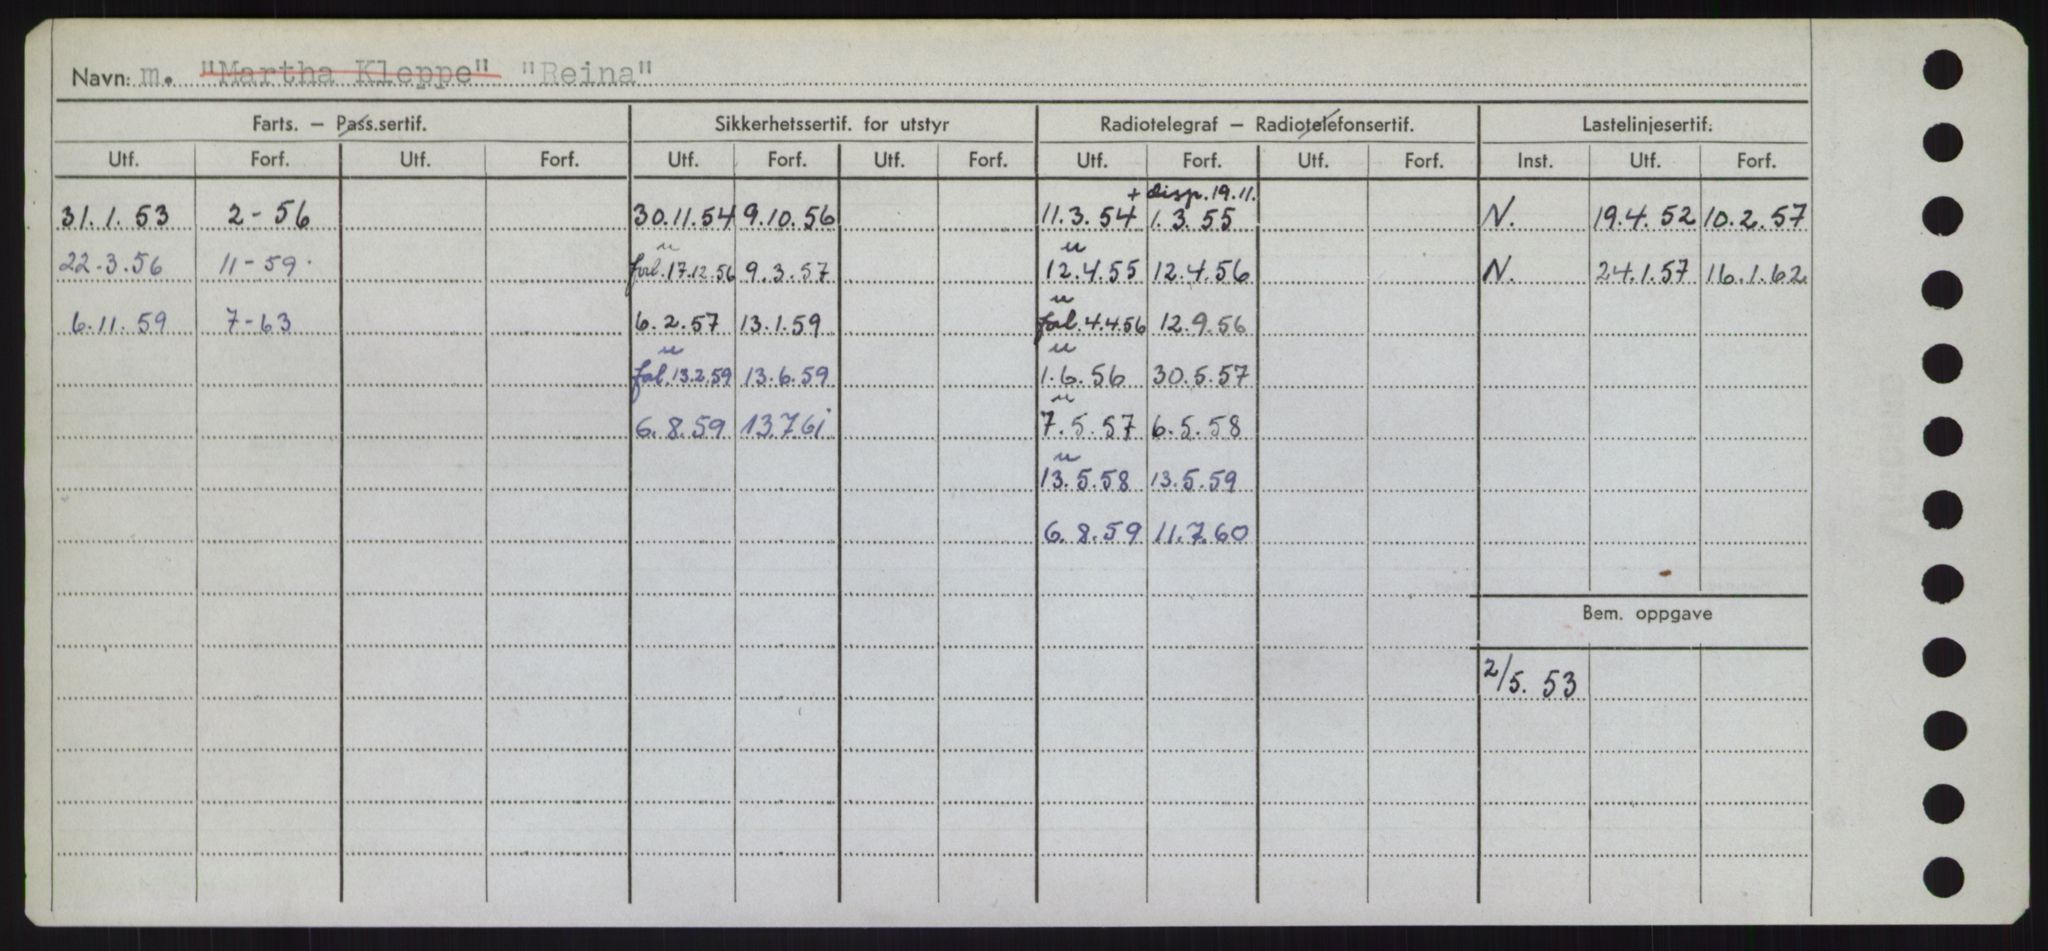 Navn: m. "Martha Kleppe" "Reina"
Farts. – Pass.sertif. Sikkerhetssertif. for utstyr Radiotelegraf – Radiotelefonsertif. Lastelinjesertif.
Utf. Forf. Utf. Forf. Utf. Forf. Utf. Forf. Utf. Forf. Utf. Forf. Inst. Utf. Forf.
+ disp. 19.11.
31.1.53 2-56 30.11.54 9.10.56 11.3.54 1.3.55 N. 19.4.52 10.2.57
u u
22-3.56 11-59. forl. 17.12.56 9.3.57 12.4.55 12.4.56 N. 24.1.57 16.1.62
u
6.11.59 7-63 6.2.57 13.1.59 forl. 4.4.56 12.9.56
u u
fol. 13.2.59 13.6.59 1.6.56 30.5.57
u
6.8.59 13.7.61 7.5.57 6.5.58
u
13.5.58 13.5.59
6.8.59 11.7.60
Bem. oppgave
2/5. 53